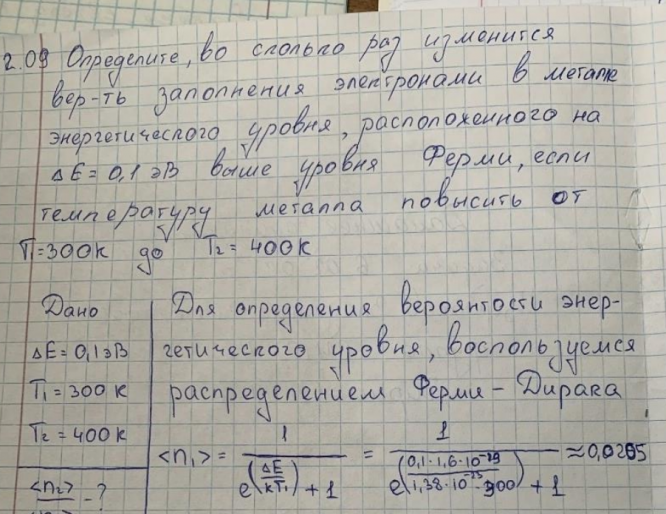 2.09 Определите, во сколько раз изменится
вер-ть заполнения электронами в металле
энергетического уровня, расположенного на
ΔE = 0,1 эВ выше уровня Ферми, если
температуру металла повысить от
T₁=300К до T₂ = 400К
Дано
ΔE = 0,1 эВ
T₁ = 300 К
T₂ = 400 К
<n₂> - ?
Для определения вероянтости энер-
гетического уровня, воспользуемся
распределением Ферми - Дирака
<n₁> = 1 / (e^(ΔE/kT₁) + 1) = 1 / (e^(0,1·1,6·10⁻¹⁹ / 1,38·10⁻²³·300) + 1) ≈ 0,0205